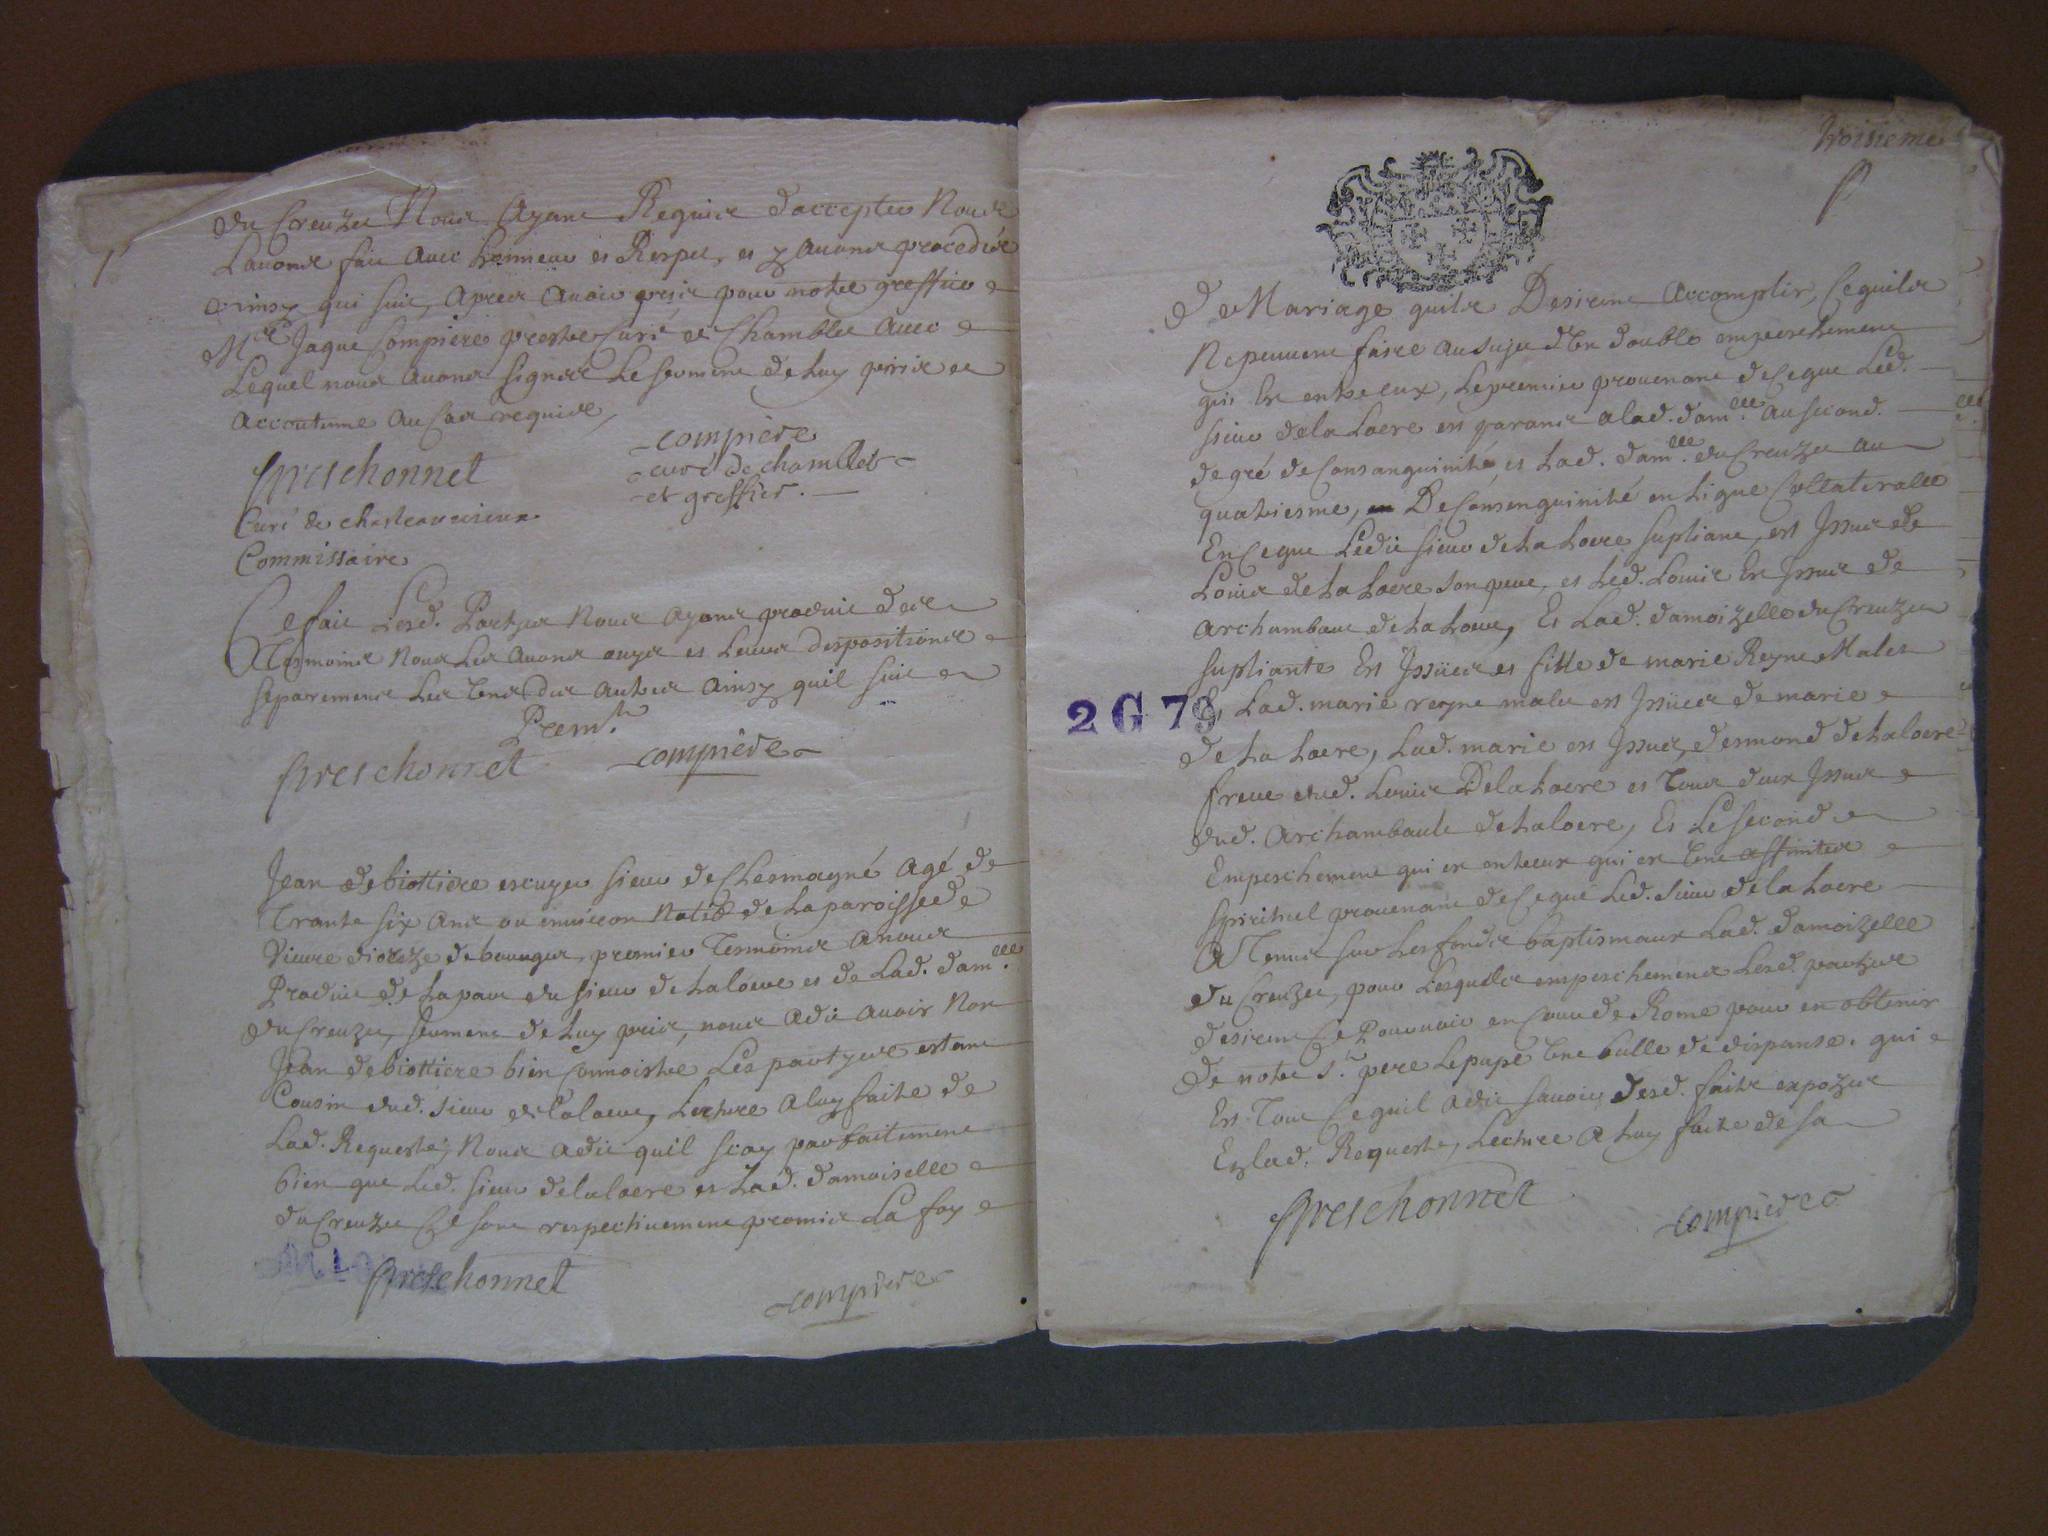 du Creuzet Nous Ayant Requis d'accepter Nous
Lavons fait Avec honneur et Respet, et y avons procedés
Ainsy qui suit, Apres Avoir pris pour notre greffier
Mre Jaque Compiere prestre Curé de Chamblet Avec
Lequel nous Avons signés Le serment de Luy pris et
Accoutume Au Cas requis,
Freschonnet
compiere
curé de chamblet
et greffier.
Curé de chasteauvieux
Commissaire
Ce fait Lesd. Partyes Nous Ayant produit des
Tesmoins Nous Les Avons ouys et Leurs depositions
separement Les Uns des Autres Ainsy quil suit
Prem.r
Freschonnet
compiere
Jean de biottiere escuyer sieur de Chesmagné Agé de
Trante six Ans ou environ Natif de La paroisse de
Vieure dioceze de bourges, premier Tesmoins A nous
Produit de La part du sieur de Laloere et de Lad. dam.lle
du Creuzet, serment de Luy pris, nous A dit Avoir Non
Jean de biottiere bien Connoistre Les partyes estant
Cousin dud. sieur de Laloere, Lecture A luy faite de
Lad. Requeste, Nous A dit quil scay parfaitement
bien que Led. sieur de laloere et Lad. damoiselle
du Creuzet Ce sont respectivement promis La foy
Freschonnet
compiere
troisieme
de Mariage quils Desirent Accomplir, Ce quils
Ne peuvent faire Au sujet d'Un double empeschement
qui Est entre eux, Le premier provenant de Ce que Led.
sieur de la Loere est parant a lad. dam.lle Au second
degré de Consanguinité et Lad. dam.lle du Creuzet Au
quatriesme, De Consenguinité en Ligne Collateralle
En Ce que Ledit sieur de La Loere supliant, est Issus de
Louis de La Loere son pere, et Led. Louis Est Issus de
Archambaut de La Loere, Et Lad. damoizelle du Creuzet
supliante Est Issüe et fille de marie Reyne Malet
Et Lad. marie reyne malet est Issüe de marie
2 G 79
de La Loere, Lad. marie est Issue, desmond de Laloere
frere dud. Louis De la Loere et Tous deux Issus
dud. Archambault de Laloere, Et Le second
Empeschement qui est entreux qui est Une affinitee
spirituel provenant de Ce que Led. sieur de la Loere
A Tenus sur Les fondts baptismaux Lad. damoizelle
du Creuzet, pour Lesquels empeschements Lesd. partyes
desirent Ce Pourvoir en Cour de Rome pour en obtenir
de notre St. pere Le pape Une bulle de dispanse. qui
Est Tout Ce quil A dit savoir desd. faits expozes
En lad. Requeste, Lecture A Luy faite de sa
Freschonnet
compiere